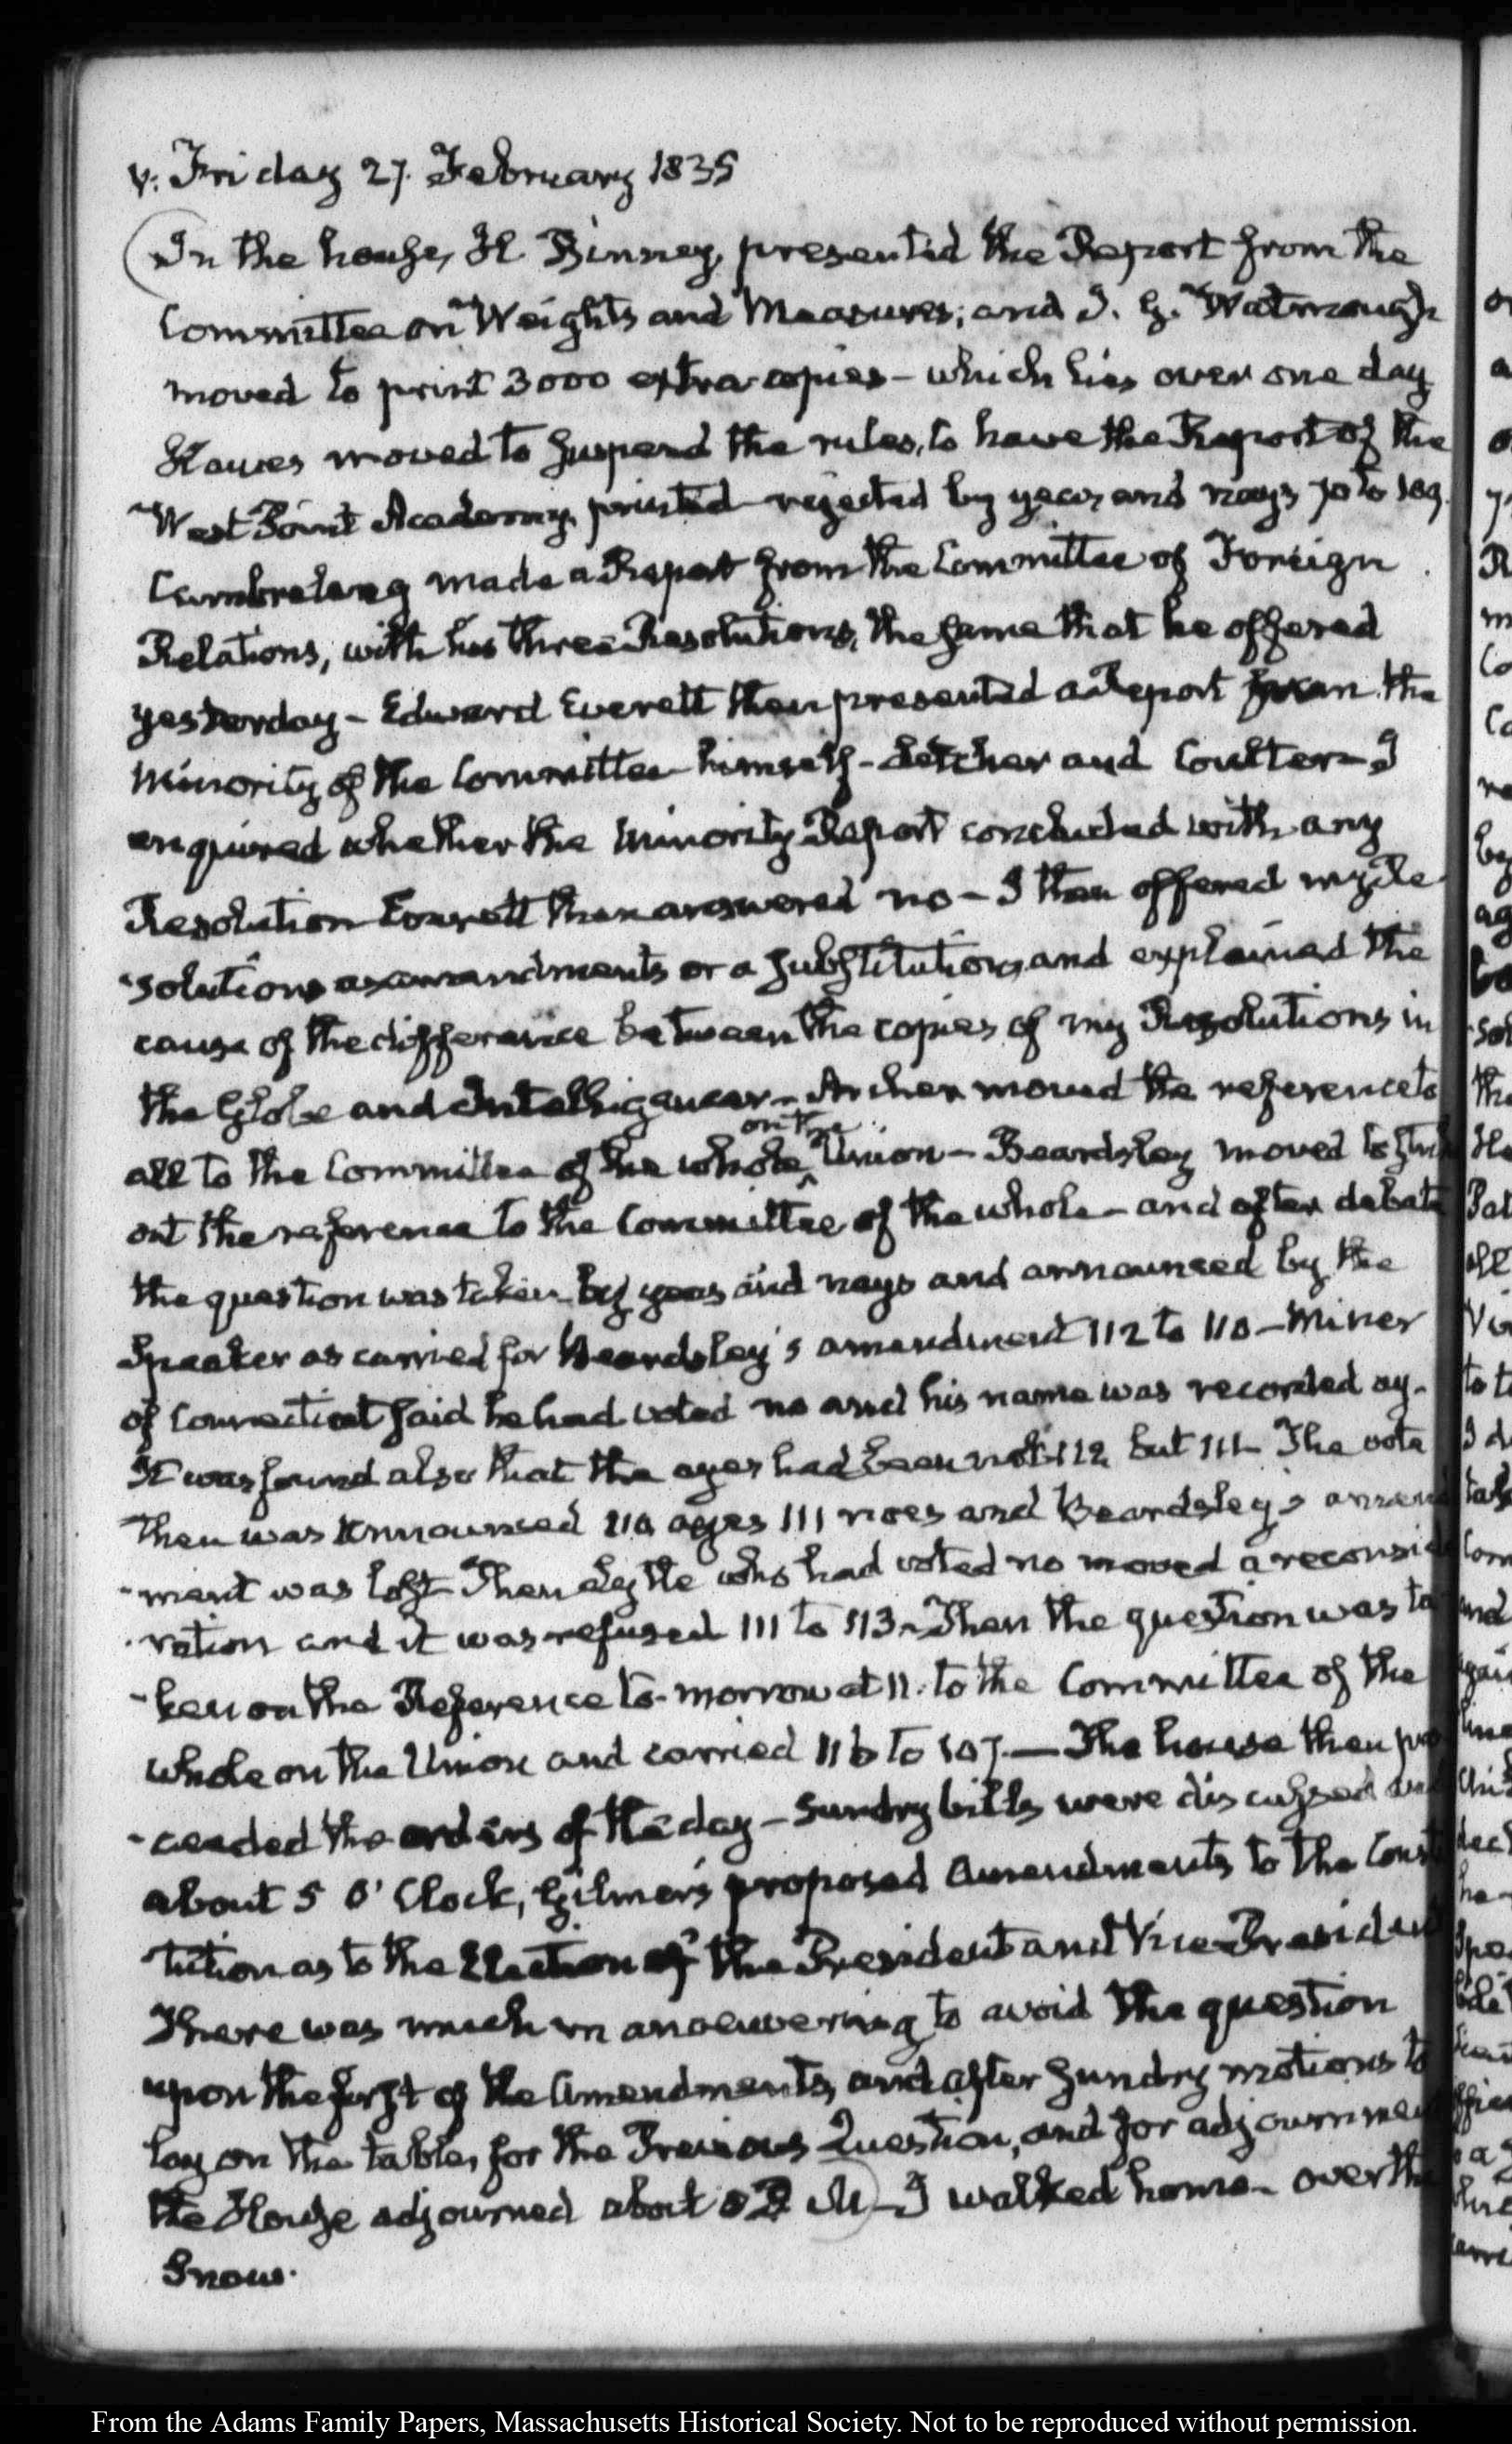 V. Friday 27. February 1835
In the house, H. Binney, presented the Report from the
Committee on Weights and Measures; and J. G. Watmough
moved to print 3000 extra copies - which lies over one day
Hawes moved to suspend the rules, to have the Report of the
West Point Academy, printed - rejected by yeas and nays 70 to 109.
Cambreleng made a Report from the Committee of Foreign
Relations, with his three Resolutions, the same that he offered
yesterday - Edward Everett then presented a Report from the
Minority of the Committee - himself - Letcher and Coulter - I
enquired whether the Minority Report concluded with any
Resolution Everett then answered no - I then offered my Re
-solutions as amendments or a substitution, and explained the
cause of the difference between the copies of my Resolutions in
the Globe and Intelligencer - Archer moved the reference to
on the
all to the Committee of the whole Union - Beardsley moved to
out the reference to the Committee of the whole - and after debate
the question was taken by yeas and nays and announced by the
Speaker as carried for Beardsley's amendment 112 to 110 - Miner
of Connecticut said he had voted no and his name was recorded ay.
It was found also that the ayes had been not 112 but 111 - The vote
then was announced 110 ayes 111 noes and Beardsley's amend
-ment was lost - Then who had voted no moved a reconside
-ration and it was refused 111 to 113 - Then the question was ta
-ken on the Reference to-morrow at 11. to the Committee of the
whole on the Union and carried to 107. — The house then pro
-ceeded the orders of the day - Sundry bills were discussed and
about 5 O'Clock, Gilmer's proposed Amendments to the Consti
tution as to the Election of the President and Vice-President
There was much manoeuvering to avoid the question
upon the first of the Amendments, and after sundry motions to
lay on the table, for the Previous Question, and for adjournment
the House adjourned about P. M - I walked home - over the
Snow.
From the Adams Family Papers, Massachusetts Historical Society. Not to be reproduced without permission.